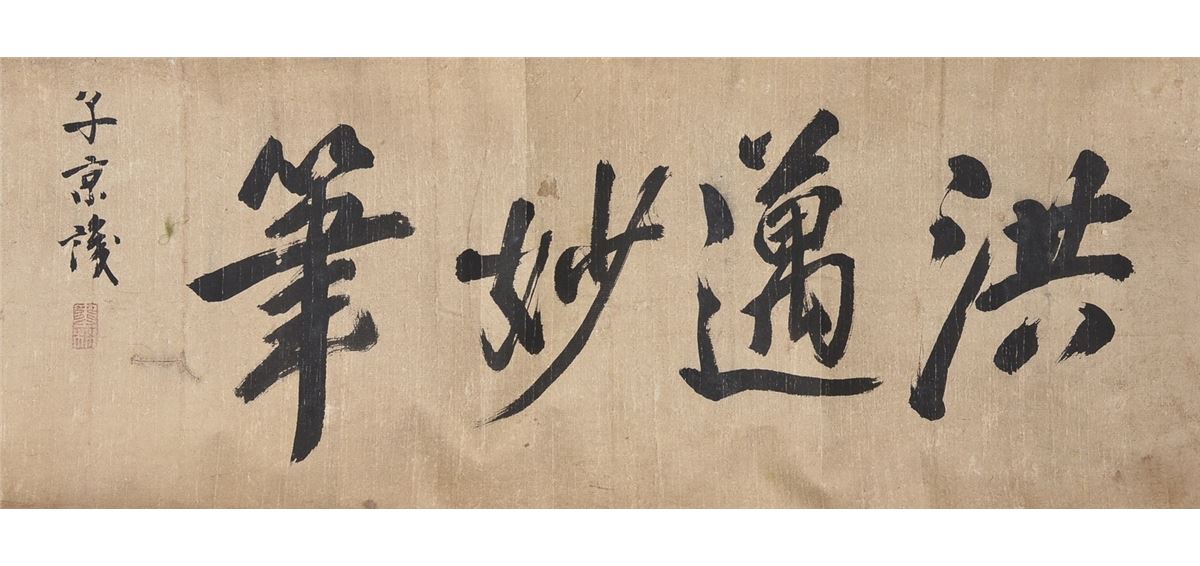 洪邁妙筆
子京識